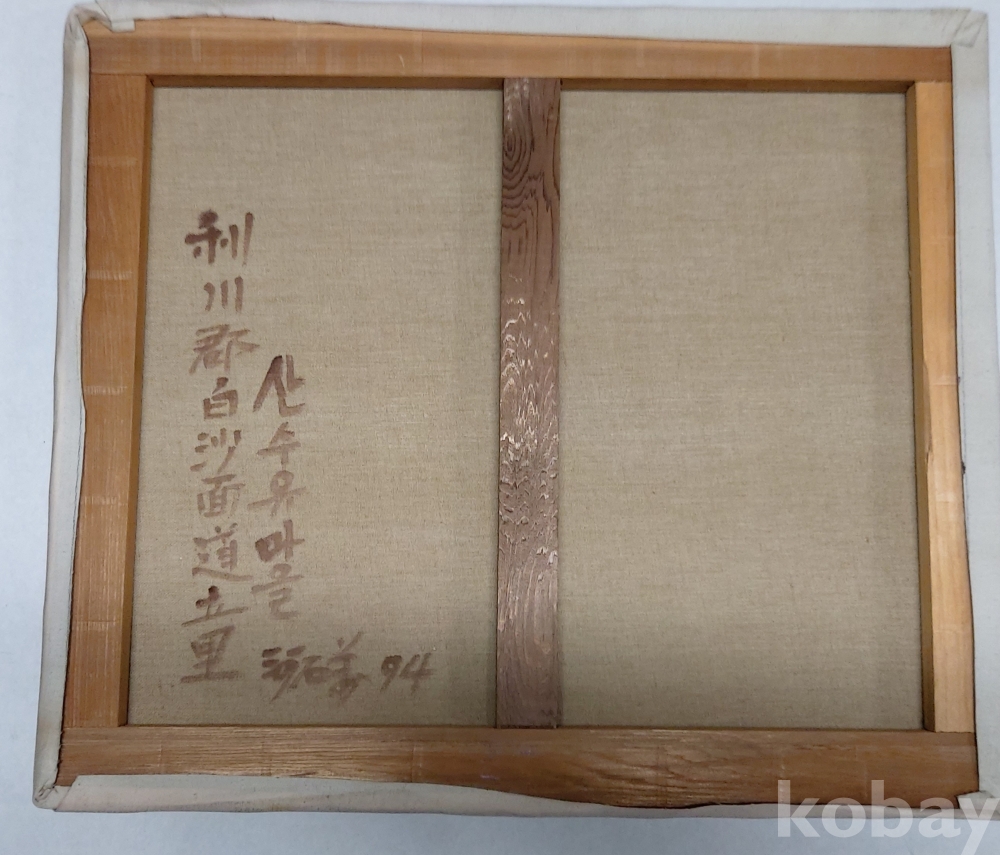 利川郡白沙面道立里
산수유마을
94
kobay